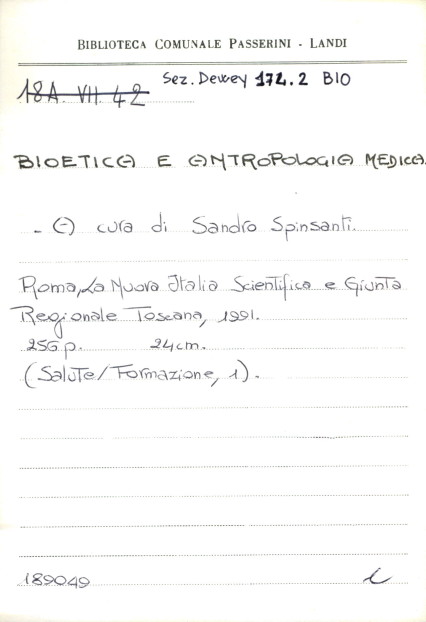 BIBLIOTECA COMUNALE PASSERINI - LANDI
Sez. Dewey 174.2 BIO
18A. VII. 42
BIOETICA E ANTROPOLOGIA MEDICA.
- A cura di Sandro Spinsanti.
Roma, La Nuova Italia Scientifica e Giunta
Regionale Toscana, 1991.
256 p. 24 cm.
(Salute/Formazione, 1).
189049